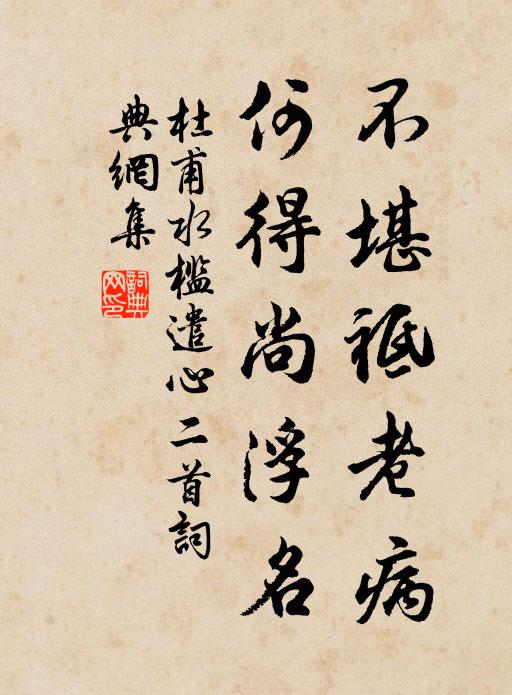 不堪祗老病
何得尚浮名
杜甫水槛遣心二首詞
典網集
詞典网印